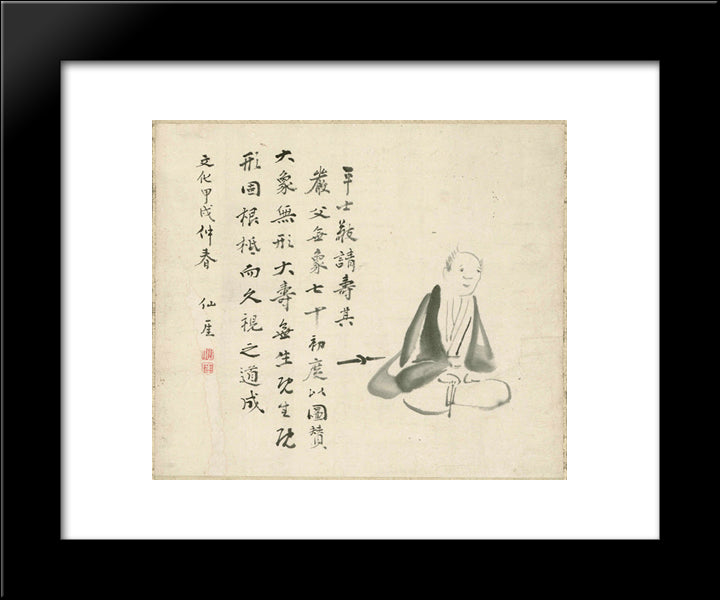 平士敬請壽其
嚴父無象七十初度以圖賛
大象無形大壽無生既生既
形固根柢而久視之道成
文化甲戌仲春　仙厓